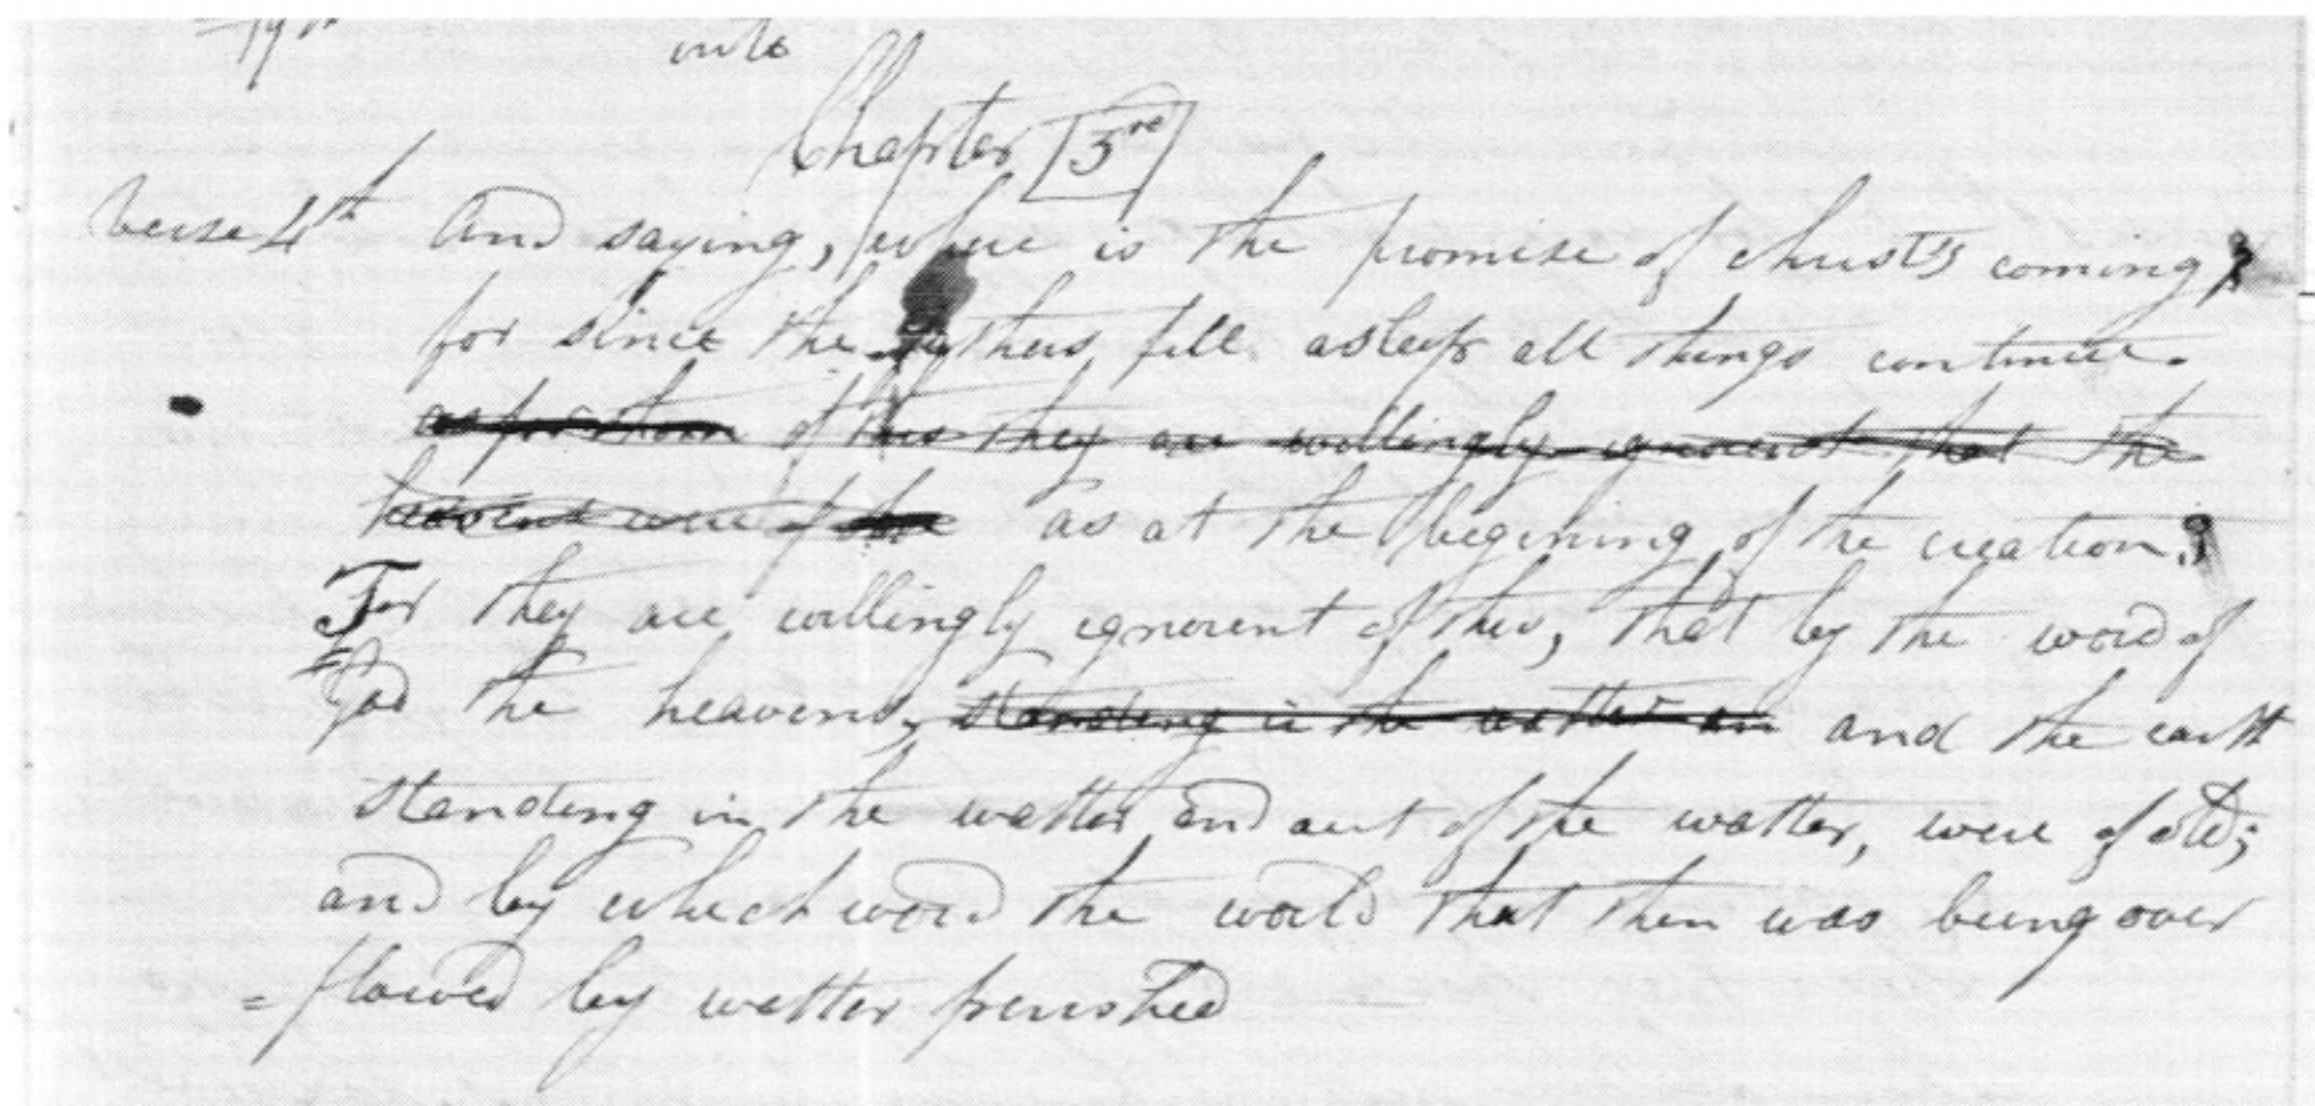 19th
into
Chapter 3re
Verse 4th And saying, where is the promise of christ's coming?
for since the fathers fell asleep all things continue.
of this they are willingly ignorent that the
heavens were of as at the begining of the creation.?
For they are willingly ignorent of this, that by the word of
=God the heavens, standing in the watter and the earth
standing in the watter and out of the watter, were of old;
and by which word the world that then was being over
=flowed by watter perished